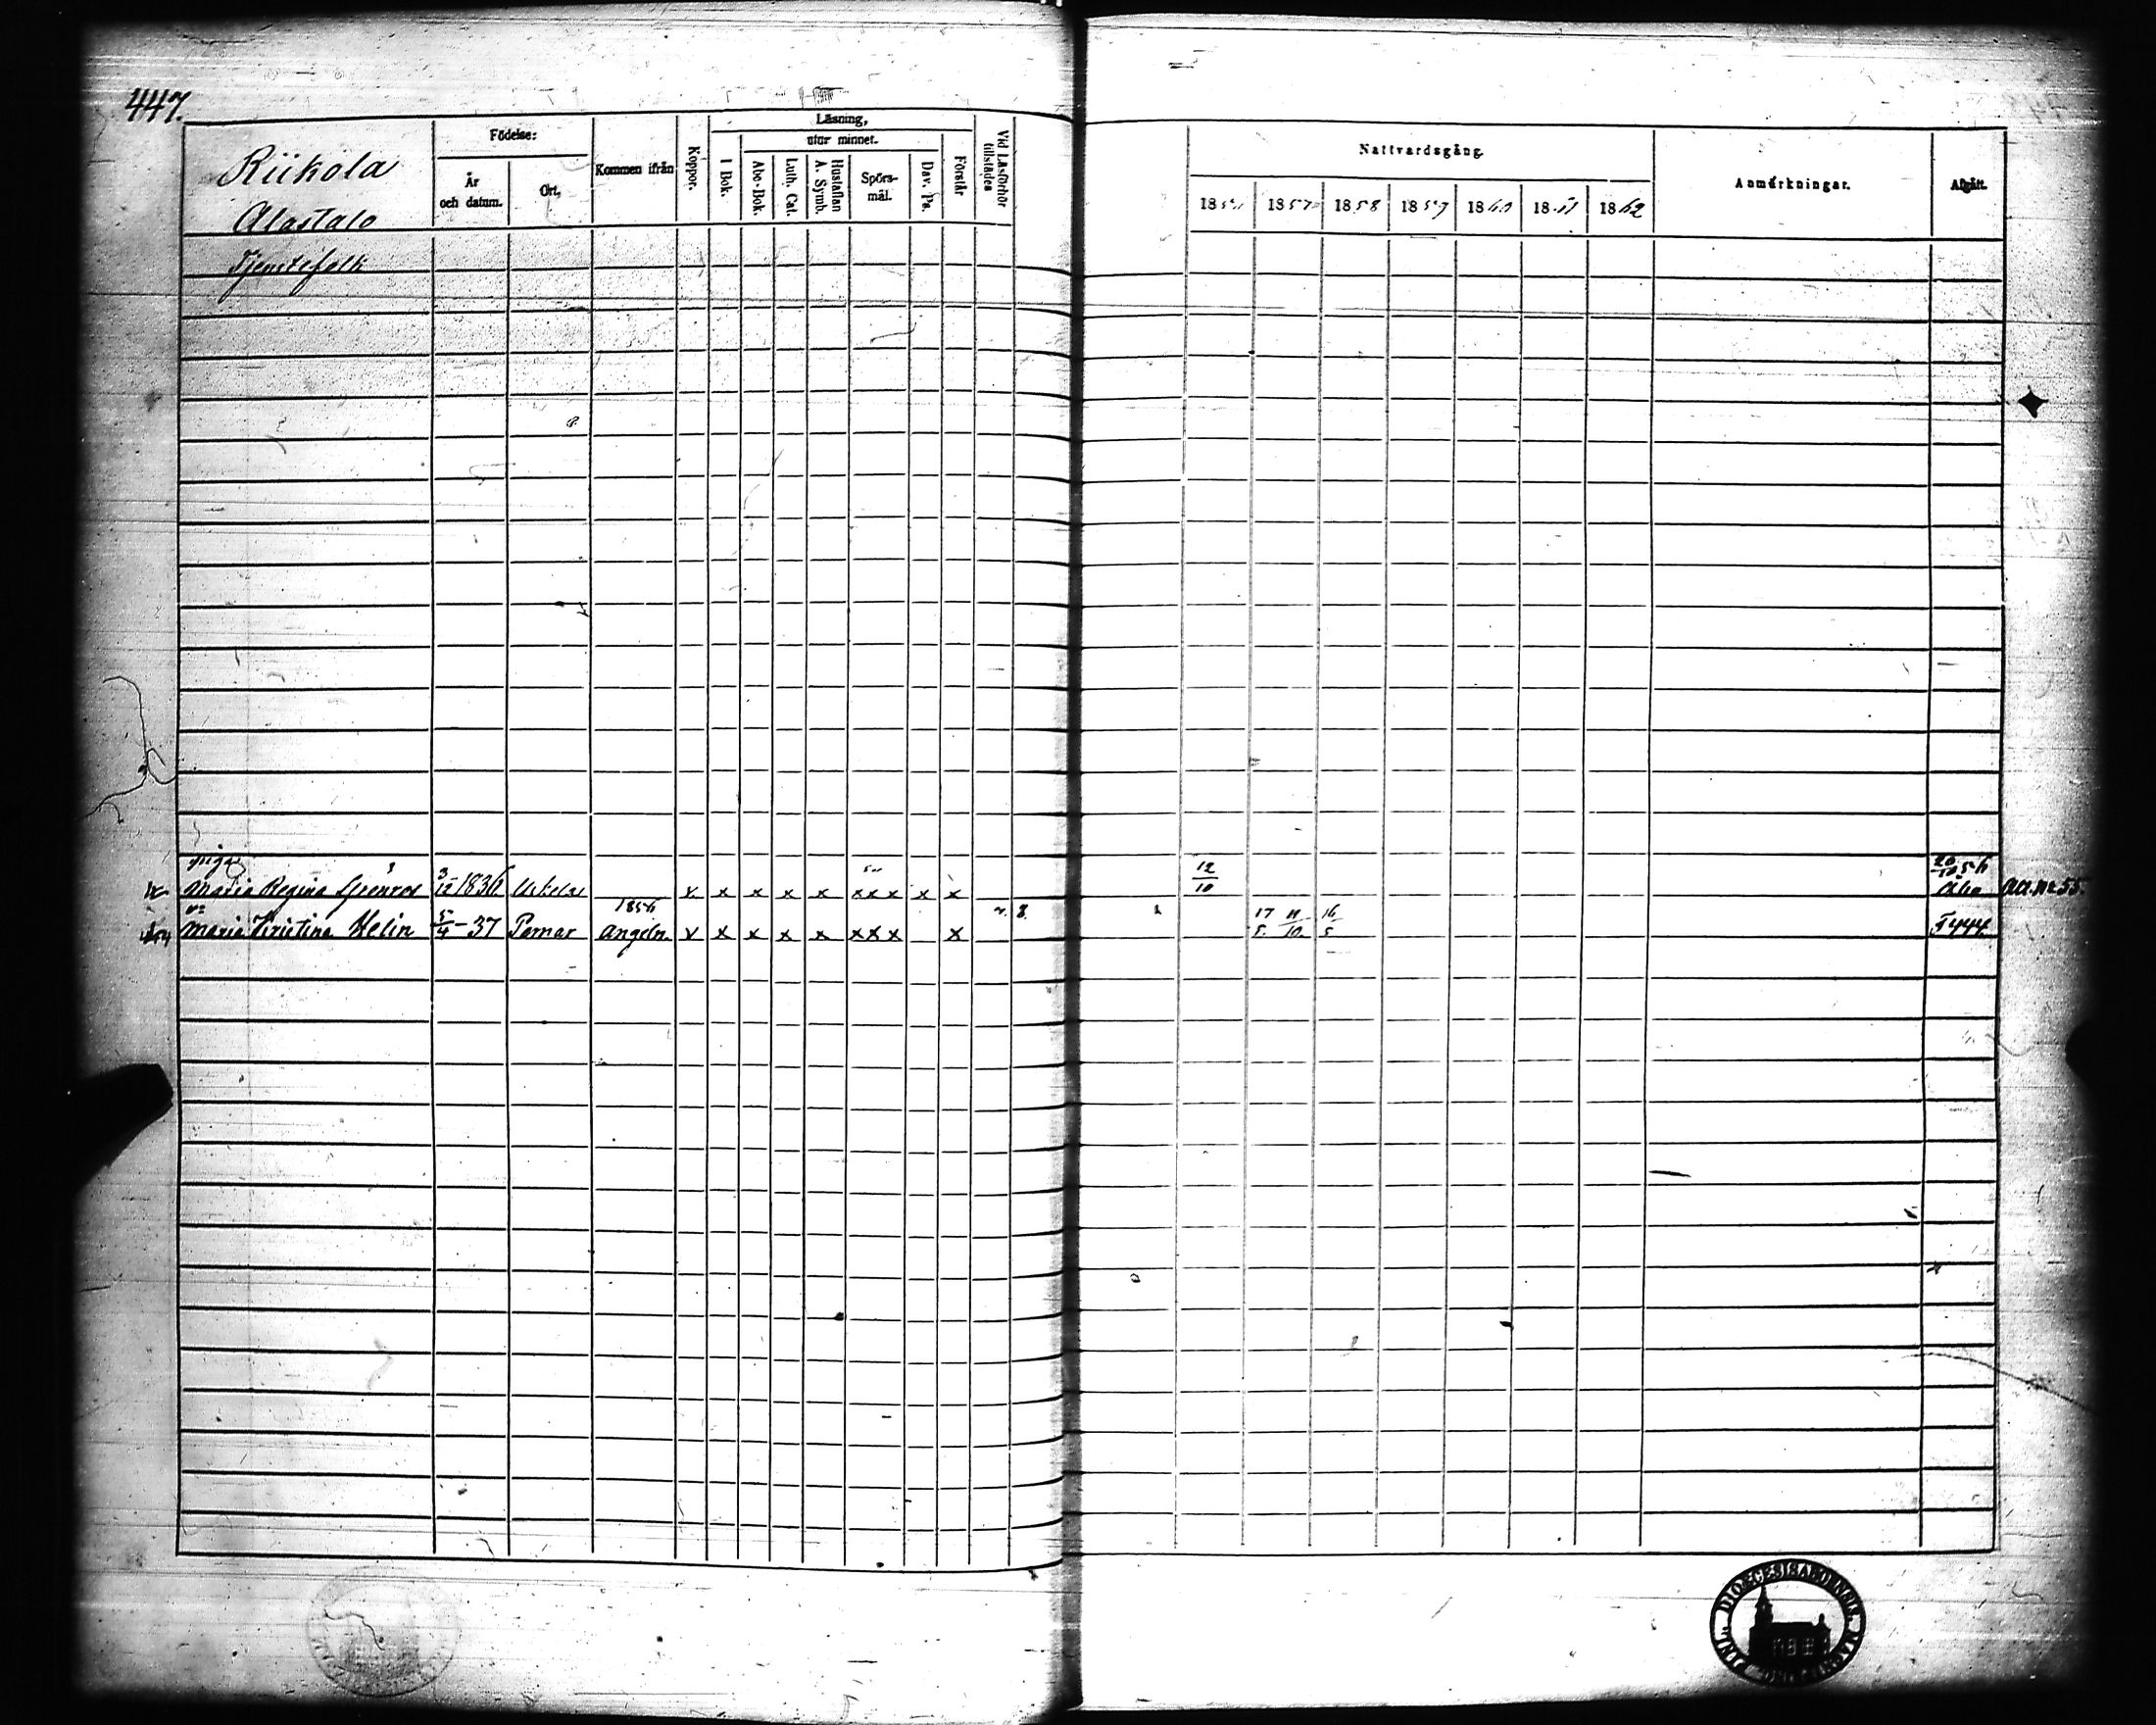 447.
Riikola
Alastalo
Födelse:
År och datum.
Ort.
Kommen ifrån
Koppor.
Läsning,
I Bok.
utur minnet.
Abc-Bok.
Luth. Cat.
Hustaflan A. Symb.
Spörs-mål.
Dav. Ps.
Förstår
Vid Läsförhör tillstädes
Nattvardsgång.
18 1857 1858 1859 1860 1861 1862
Anmärkningar.
Afgått.
Tjenstefolk
piga
Maria Regina 3/12 1836 Uskela x x x x x xxx x x 12/10 20/10 56 Åbo att. No 55.
Maria Kristina Helin 5/4 - 37 Pemar 1856 Angeln. x x x x x xxx x 17/5. 11/10. 16/5 F 444.